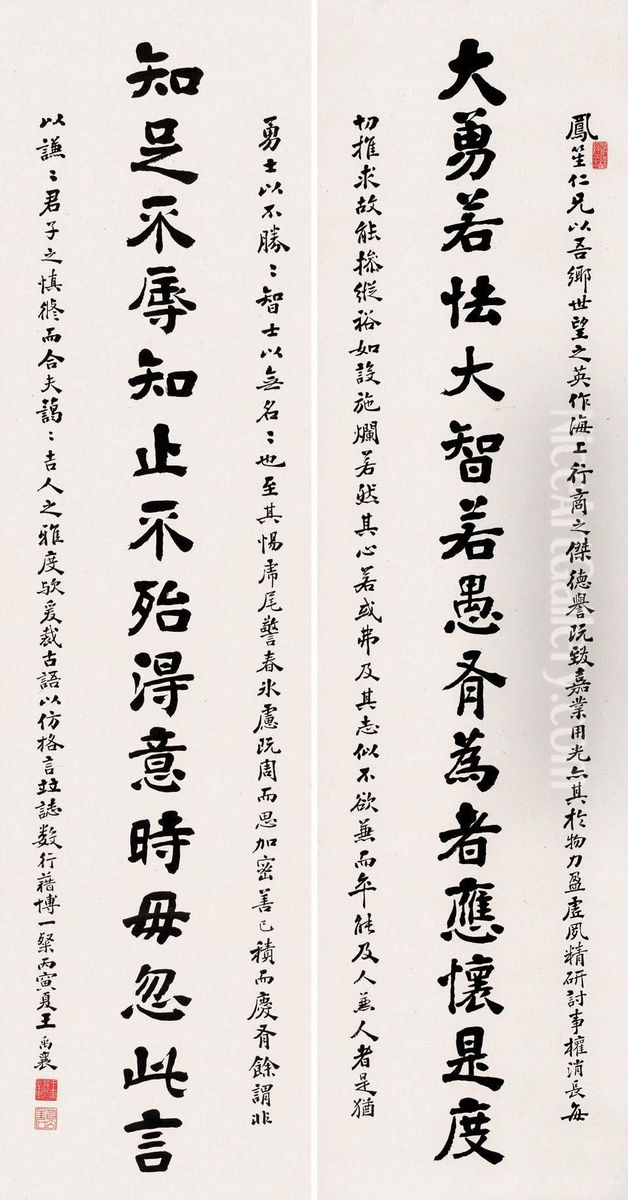 鳳笙仁兄以吾鄉世望之英作海上行商之傑德譽既致嘉業用光亦其於物力盈虛夙精研討事權消長每
大勇若怯大智若愚有為者應懷是度
切推求故能操縱裕如設施爛若然其心若或弗及其志似不欲兼而年能及人兼人者是猶
勇士以不勝〻智士以無名〻也至其惕虎尾警春冰慮既周而思加密善已積而慶有餘謂非
知足不辱知止不殆得意時毋忽此言
以謙〻君子之慎修而合夫藹〻吉人之雅度歟爰裁古語以仿格言並誌數行藉博一粲丙寅夏王禹襄
RiccoArtGallery.com